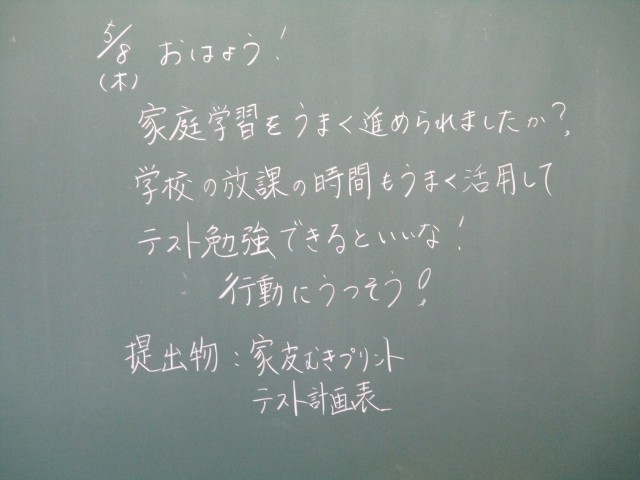 5/8 おはよう!
(木)
家庭学習をうまく進められましたか?
学校の放課の時間もうまく活用して
テスト勉強できるといいな!
行動にうつそう!
提出物:家皮むきプリント
テスト計画表